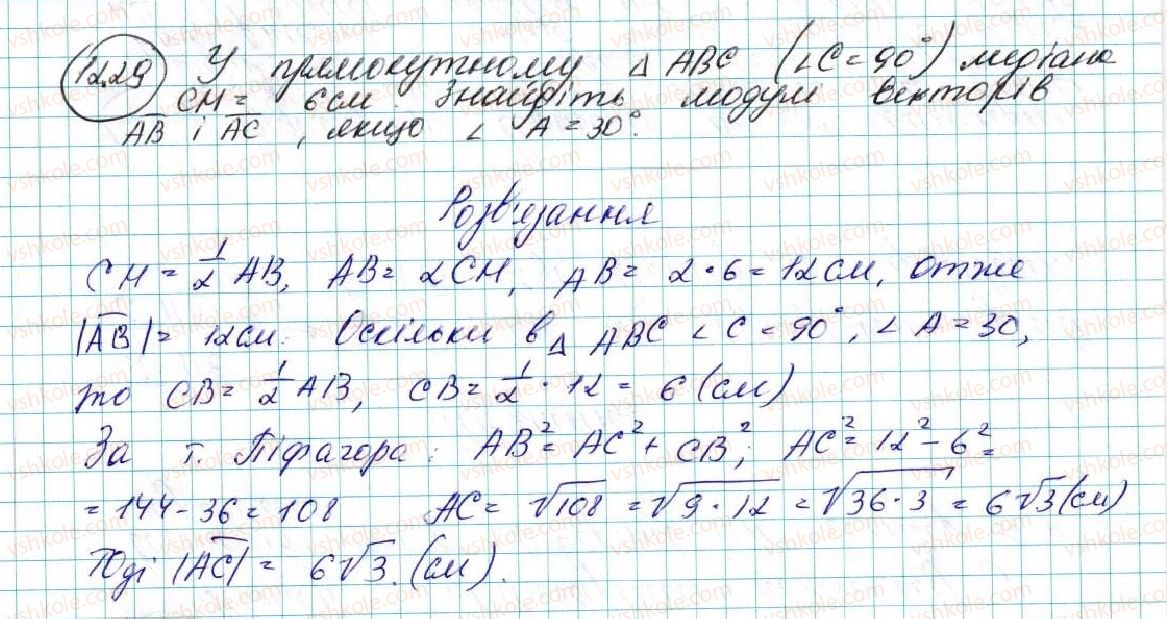 12.29 У прямокутному △ ABC (∠C = 90°) медіана
CM = 6 см. Знайдіть модулі векторів
AB і AC, якщо ∠ A = 30°.
Розв'язання
CM = 1/2 AB, AB = 2CM, AB = 2 • 6 = 12 см, отже
|AB| = 12 см. Оскільки в △ ABC ∠C = 90°, ∠A = 30,
то CB = 1/2 AB, CB = 1/2 · 12 = 6 (см)
За т. Піфагора: AB² = AC² + CB²; AC² = 12² - 6² =
= 144 - 36 = 108 AC = √108 = √9 · 12 = √36 · 3 = 6√3 (см)
Тоді |AC| = 6√3. (см).